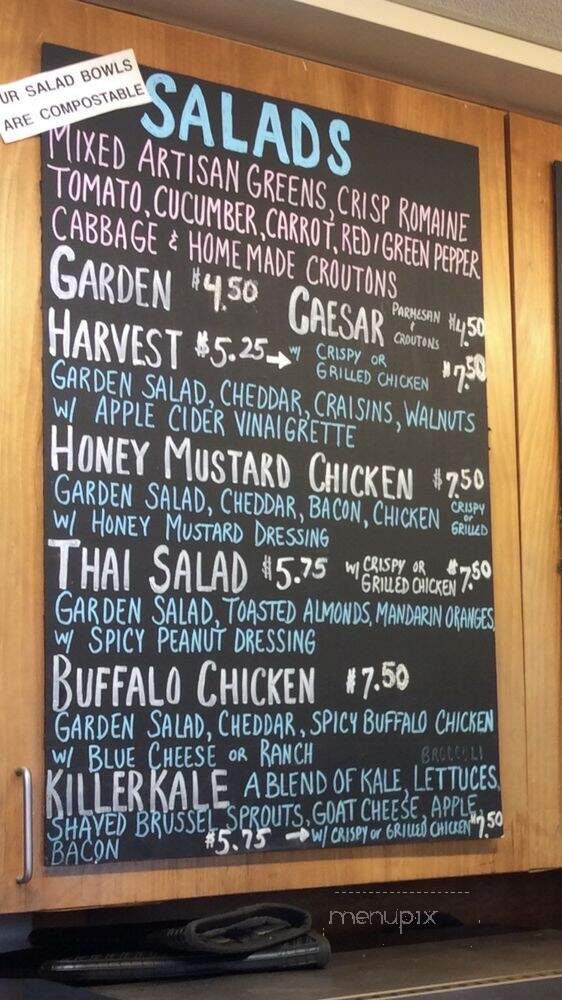 UR SALAD BOWLS
ARE COMPOSTABLE
SALADS
MIXED ARTISAN GREENS, CRISP ROMAINE
TOMATO, CUCUMBER, CARROT, RED/GREEN PEPPER
CABBAGE & HOMEMADE CROUTONS
GARDEN $4.50
CAESAR PARMESAN & CROUTONS $4.50
HARVEST $5.25 → W/ CRISPY OR GRILLED CHICKEN $7.50
GARDEN SALAD, CHEDDAR, CRAISINS, WALNUTS
W/ APPLE CIDER VINAIGRETTE
HONEY MUSTARD CHICKEN $7.50
GARDEN SALAD, CHEDDAR, BACON, CHICKEN CRISPY or GRILLED
W/ HONEY MUSTARD DRESSING
THAI SALAD $5.75 W/ CRISPY OR GRILLED CHICKEN $7.50
GARDEN SALAD, TOASTED ALMONDS, MANDARIN ORANGES,
W/ SPICY PEANUT DRESSING
BUFFALO CHICKEN $7.50
GARDEN SALAD, CHEDDAR, SPICY BUFFALO CHICKEN
W/ BLUE CHEESE OR RANCH
BROCCOLI
KILLER KALE A BLEND OF KALE, LETTUCES,
SHAVED BRUSSEL SPROUTS, GOAT CHEESE, APPLE,
BACON $5.75 → W/ CRISPY or GRILLED CHICKEN $7.50
menupix